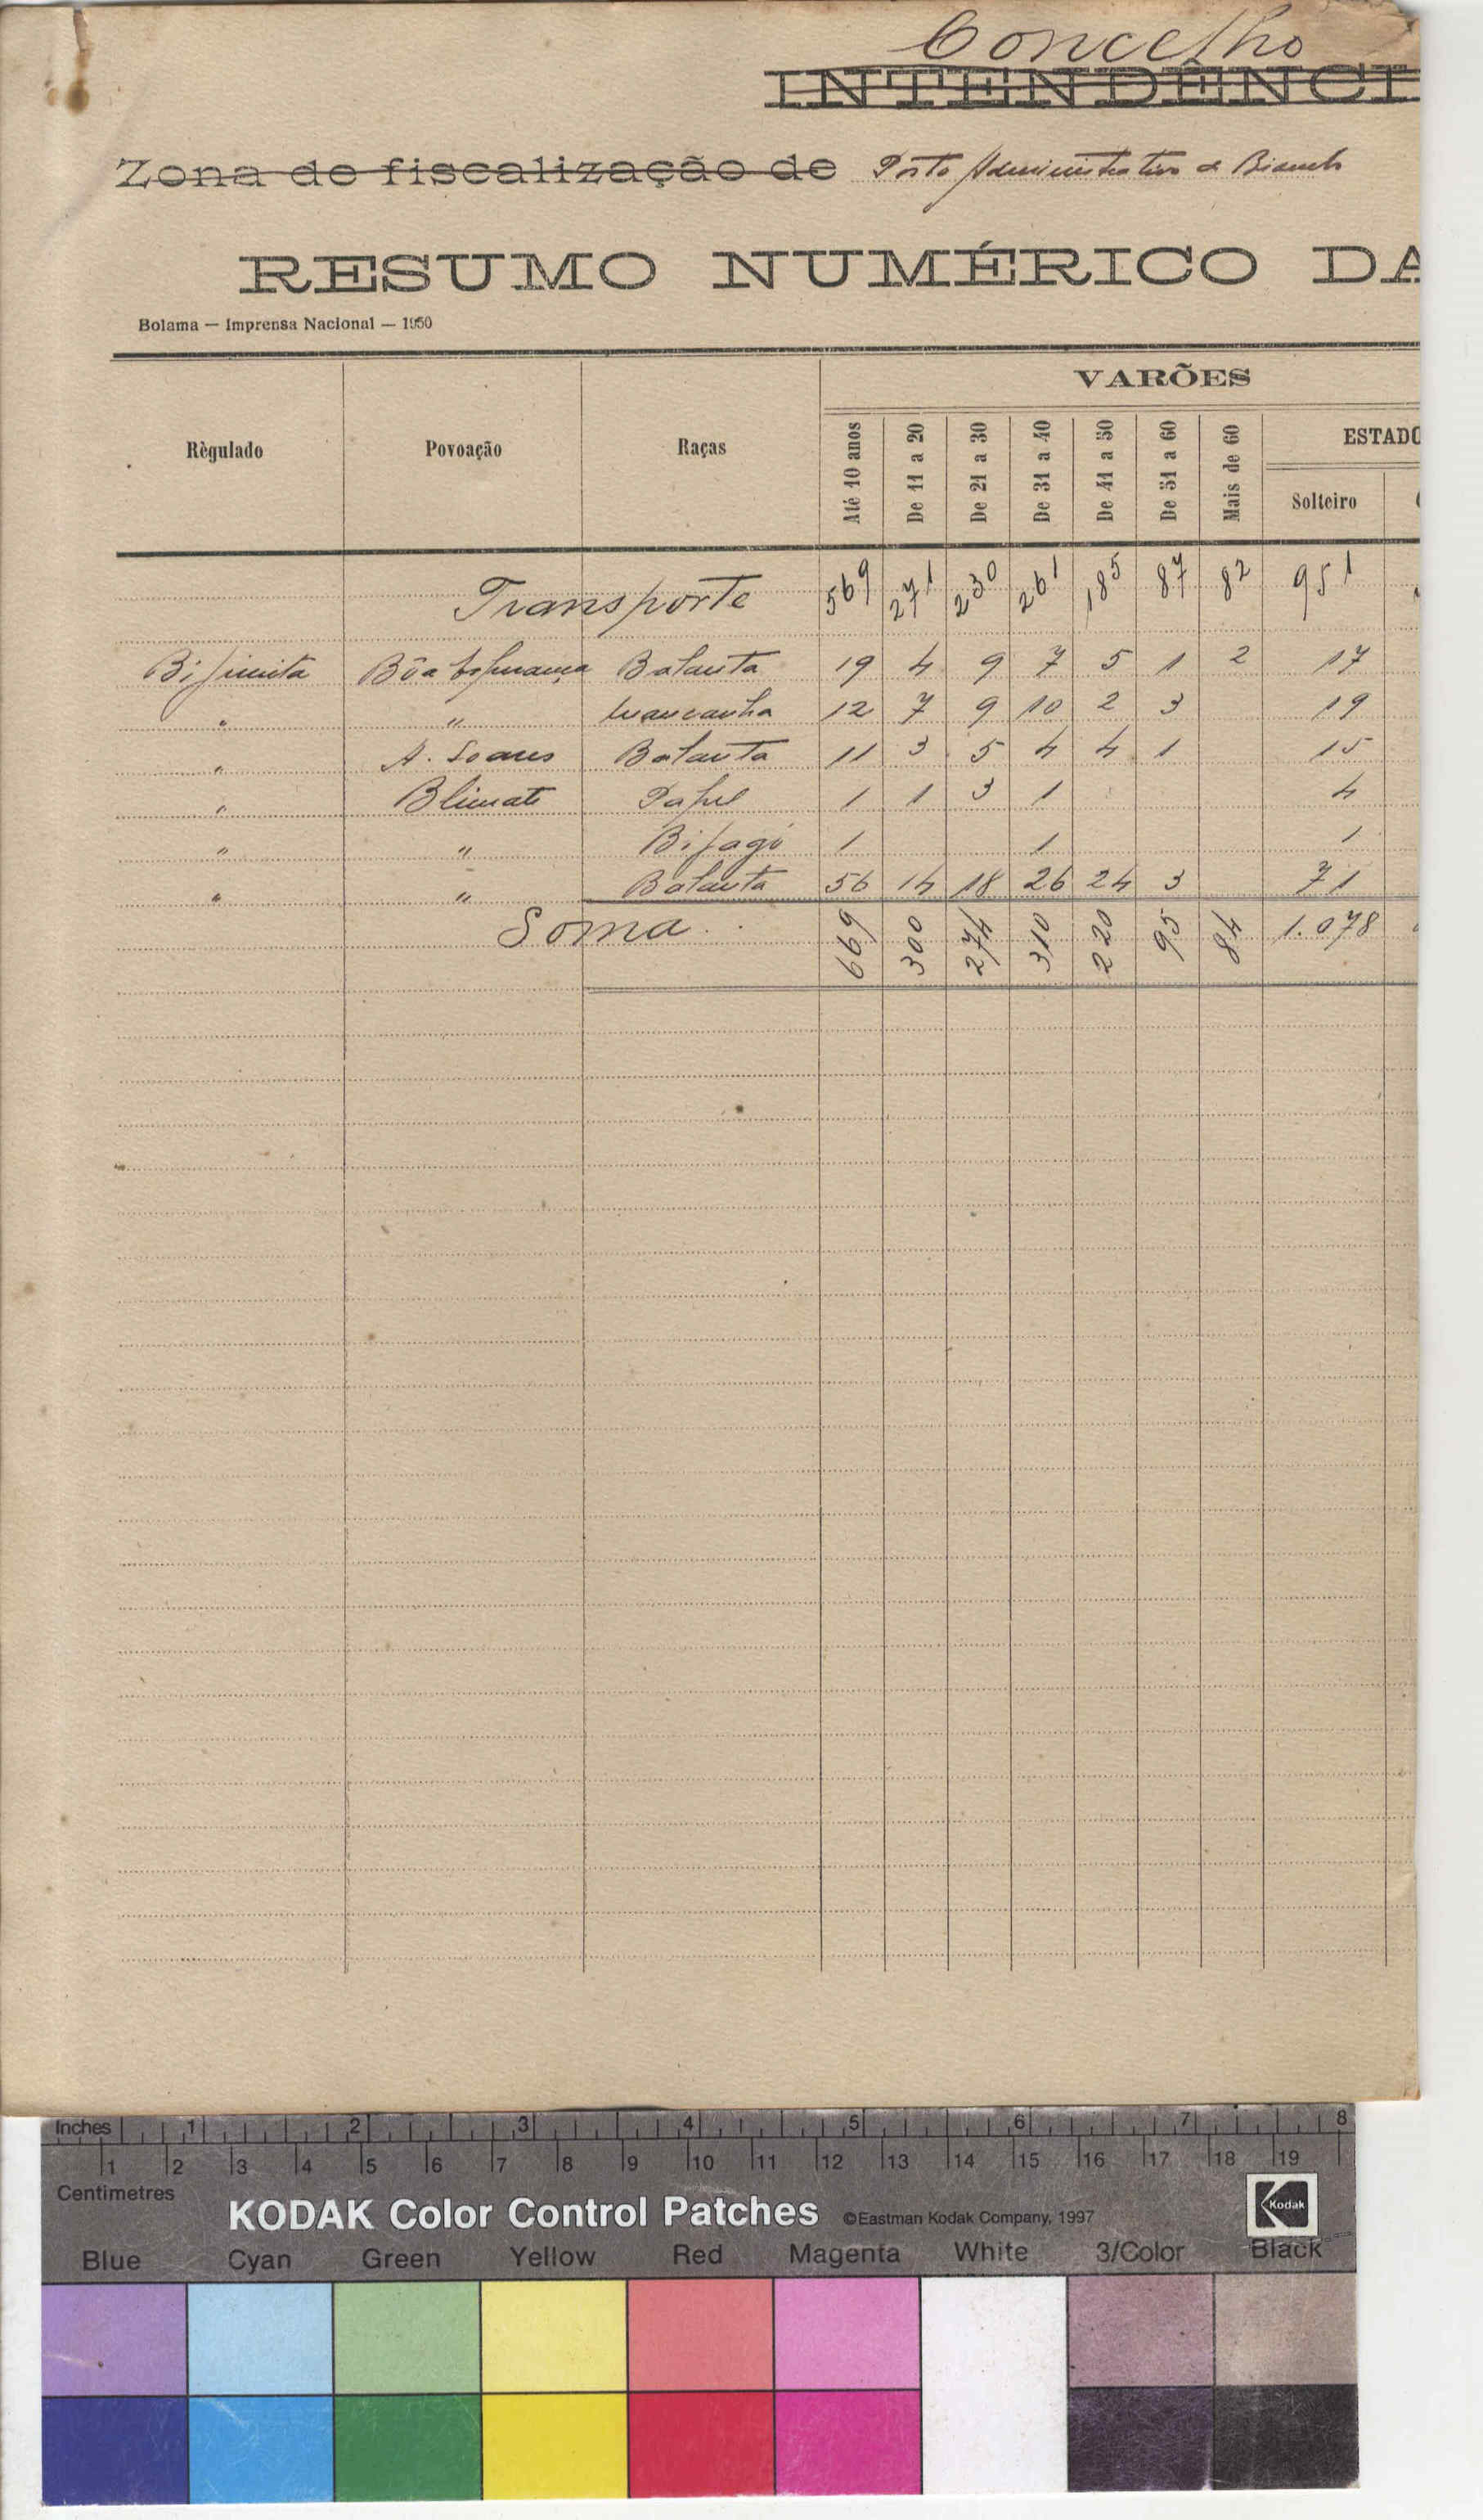 Concelho
INTENDÊNCI
Zona de fiscalização de Posto Administrativo de
RESUMO NUMÉRICO DA
Bolama — Imprensa Nacional — 1950
VARÕES
Règulado Povoação Raças Até 10 anos De 11 a 20 De 21 a 30 De 31 a 40 De 41 a 50 De 51 a 60 Mais de 60 ESTADO
Solteiro
Transporte 569 271 230 261 185 87 82 951
Bijimita Bôa Esperança Balanta 19 4 9 7 5 1 2 17
" " Mancanha 12 7 9 10 2 3 19
" A. Soares Balanta 11 3 5 4 4 1 15
" Papel 1 1 3 1 4
" " Bijagó 1 1 1
" " Balanta 56 14 18 26 24 3 71
Soma 669 300 274 310 220 95 84 1.078
Inches 1 2 3 4 5 6 7 8
1 2 3 4 5 6 7 8 9 10 11 12 13 14 15 16 17 18 19
Centimetres
KODAK Color Control Patches ©Eastman Kodak Company, 1997 Kodak
Blue Cyan Green Yellow Red Magenta White 3/Color Black